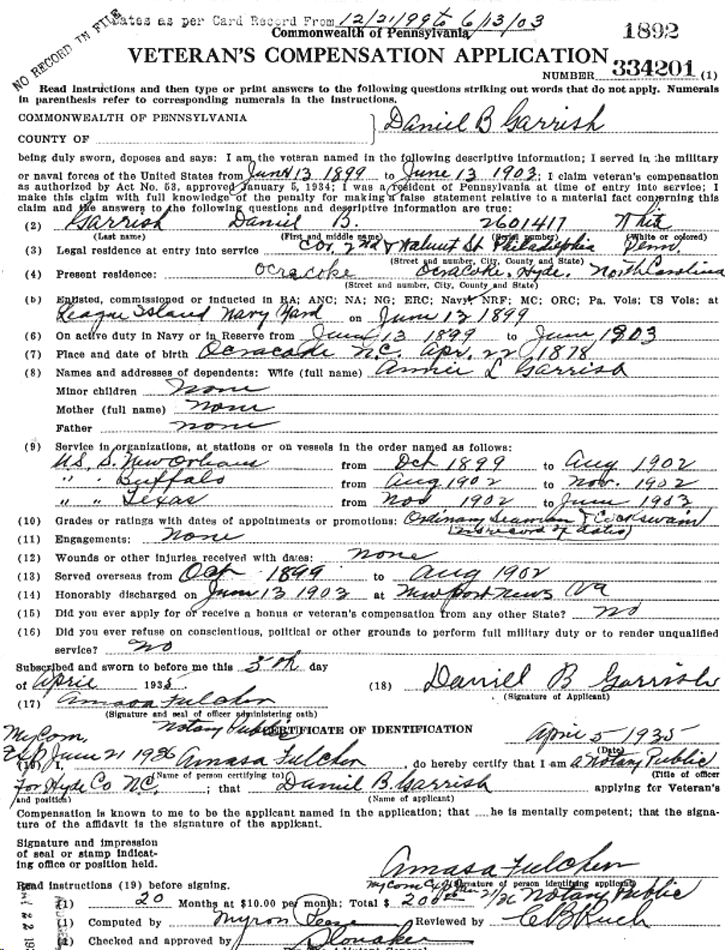 Dates as per Card Record From 12/21/99 to 6/13/03
NO RECORD IN FILE
Commonwealth of Pennsylvania
1892
VETERAN'S COMPENSATION APPLICATION
NUMBER 334201 (1)
Read instructions and then type or print answers to the following questions striking out words that do not apply. Numerals
in parenthesis refer to corresponding numerals in the instructions.
COMMONWEALTH OF PENNSYLVANIA
COUNTY OF
Daniel B Garrish
being duly sworn, deposes and says: I am the veteran named in the following descriptive information; I served in the military
or naval forces of the United States from June 13 1899 to June 13 1903; I claim veteran's compensation
as authorized by Act No. 53, approved January 5, 1934; I was a resident of Pennsylvania at time of entry into service; I
make this claim with full knowledge of the penalty for making a false statement relative to a material fact concerning this
claim and the answers to the following questions and descriptive information are true:
(2) Garrish Daniel B. 2601417 White
(Last name) (First and middle name) (Serial number) (White or colored)
(3) Legal residence at entry into service Cor. 2nd & Walnut St Philadelphia Penn.
(Street and number, City, County and State)
(4) Present residence: Ocracoke Ocracoke, Hyde, North Carolina
(Street and number, City, County and State)
(5) Enlisted, commissioned or inducted in RA; ANC; NA; NG; ERC; Navy; NRF; MC; ORC; Pa. Vols; US Vols: at
League Island Navy Yard on June 13 1899
(6) On active duty in Navy or in Reserve from June 13 1899 to June 1903
(7) Place and date of birth Ocracode N.C. Apr. 22, 1878
(8) Names and addresses of dependents: Wife (full name) Annie L Garrish
Minor children none
Mother (full name) none
Father none
(9) Service in organizations, at stations or on vessels in the order named as follows:
U.S.S. New Orleans from Oct 1899 to Aug 1902
" " Buffalo from Aug 1902 to Nov. 1902
" " Texas from Nov 1902 to June 1903
(10) Grades or ratings with dates of appointments or promotions: Ordinary Seaman & Cockswain
(no record of dates)
(11) Engagements: None
(12) Wounds or other injuries received with dates: none
(13) Served overseas from Oct 1899 to Aug 1902
(14) Honorably discharged on June 13 1903 at Newport News Va
(15) Did you ever apply for or receive a bonus or veteran's compensation from any other State? no
(16) Did you ever refuse on conscientious, political or other grounds to perform full military duty or to render unqualified
service? no
Subscribed and sworn to before me this 5th day
of April 1935 (18) Daniel B Garrish
(Signature of Applicant)
(17) Amasa Fulcher
(Signature and seal of officer administering oath)
Notary Public
CERTIFICATE OF IDENTIFICATION April 5 1935
(Date)
My Com. Exp June 21 1936
(19) I, Amasa Fulcher, do hereby certify that I am a Notary Public
(Name of person certifying to) (Title of officer
For Hyde Co N.C.; that Daniel B. Garrish applying for Veteran's
and position) (Name of applicant)
Compensation is known to me to be the applicant named in the application; that he is mentally competent; that the signa-
ture of the affidavit is the signature of the applicant.
Signature and impression
of seal or stamp indicat-
ing office or position held.
Amasa Fulcher
(Signature of person identifying applicant)
Notary Public
Read instructions (19) before signing.
(1) 20 Months at $10.00 per month: Total $ 200
(1) Computed by Myron Reviewed by
(1) Checked and approved by